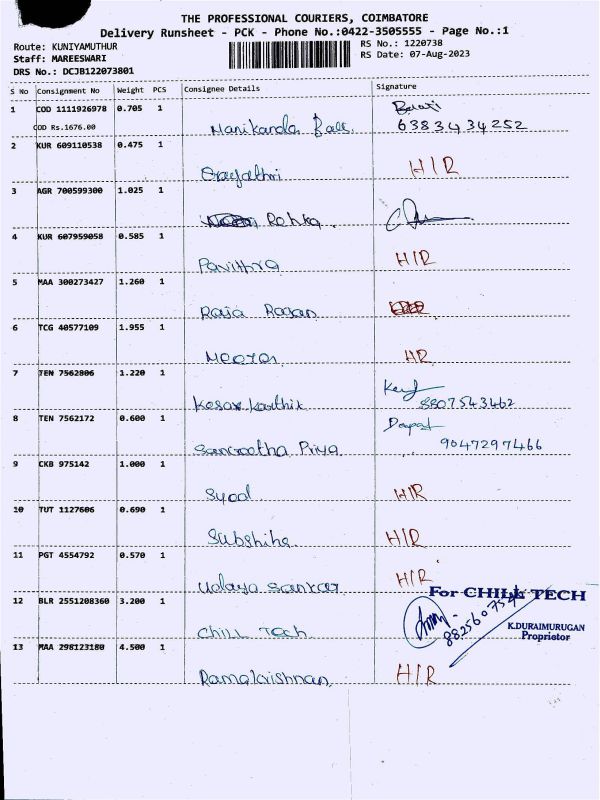 THE PROFESSIONAL COURIERS, COIMBATORE
Delivery Runsheet - PCK - Phone No.:0422-3505555 - Page No.:1
Route: KUNIYAMUTHUR
RS No.: 1220738
Staff: MAREESWARI
RS Date: 07-Aug-2023
DRS No.: DCJB122073801
S No Consignment No Weight PCS Consignee Details Signature
1 COD 1111926978 0.705 1
COD Rs.1676.00 Manikanda 6383434252
2 KUR 609110538 0.475 1
H/R
3 AGR 700599300 1.025 1
Rehka
4 KUR 607959058 0.585 1
Pavithra H/R
5 MAA 300273427 1.260 1
Raja Ragan
6 TCG 40577109 1.955 1
Meera HR
7 TEN 7562806 1.220 1
Kesav Karthik 8807543462
8 TEN 7562172 0.600 1
Sangeetha Priya 9047297466
9 CKB 975142 1.000 1
Syed H/R
10 TUT 1127606 0.690 1
H/R
11 PGT 4554792 0.570 1
Udaya Sankar H/R
12 BLR 2551208360 3.200 1
For CHILL TECH
Chill Tech
K.DURAIMURUGAN
Proprietor
13 MAA 298123180 4.500 1
Ramakrishnan H/R